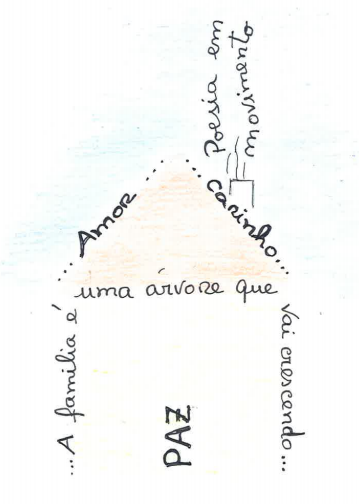 Poesia em
movimento
... Amor ...
... carinho...
...A família é
uma árvore que
vai crescendo...
PAZ